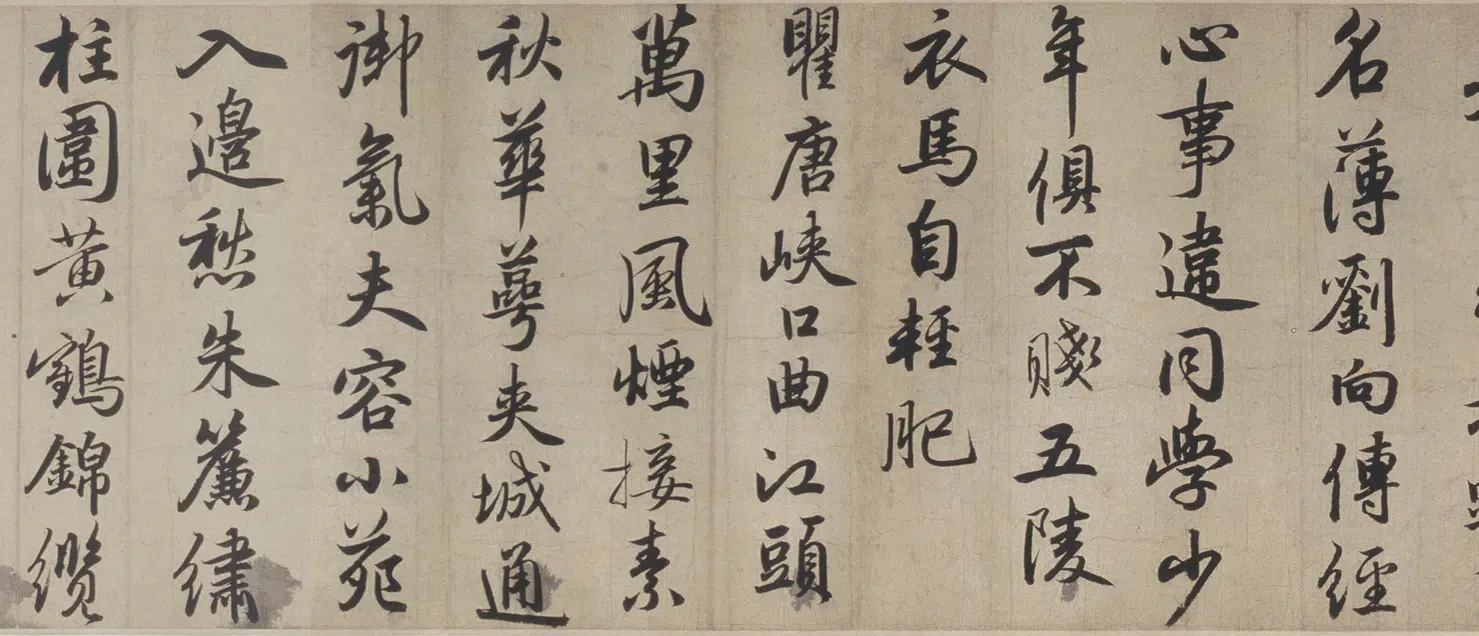 名薄劉向傳經
心事違同學少
年俱不賤五陵
衣馬自輕肥
瞿唐峽口曲江頭
萬里風煙接素
秋華萼夾城通
御氣夫容小苑
入邊愁朱簾繡
柱圍黃鶴錦纜